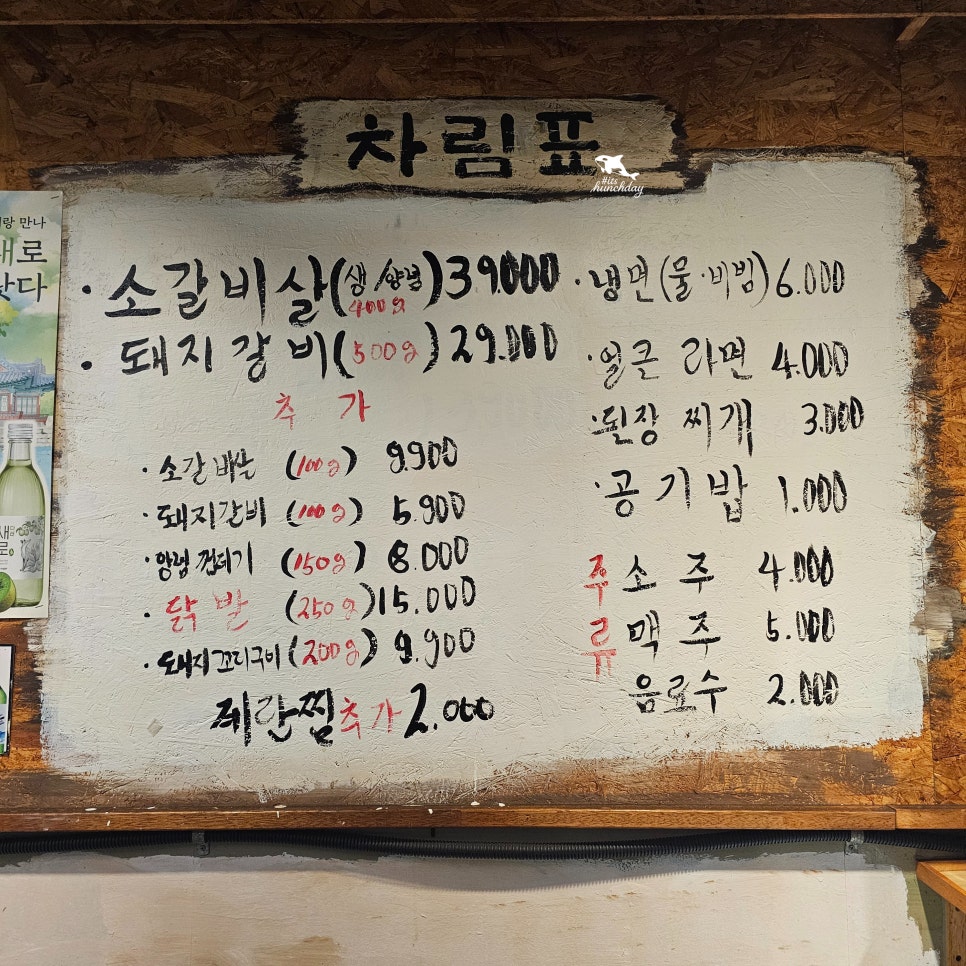 차림표
#its
hunchday
랑 만나
새로
낫다
새로
· 소갈비살(생/양념) 39.000
400g
· 돼지갈비(500g) 29.000
추 가
· 소갈비살 (100g) 9.900
· 돼지갈비 (100g) 5.900
· 양념 껍데기 (150g) 8.000
· 닭발 (250g) 15.000
· 돼지꼬리구이 (200g) 9.900
계란찜추가 2.000
· 냉면(물·비빔) 6.000
· 얼큰 라면 4.000
· 된장 찌개 3.000
· 공기밥 1.000
주류
소주 4.000
맥주 5.000
음료수 2.000